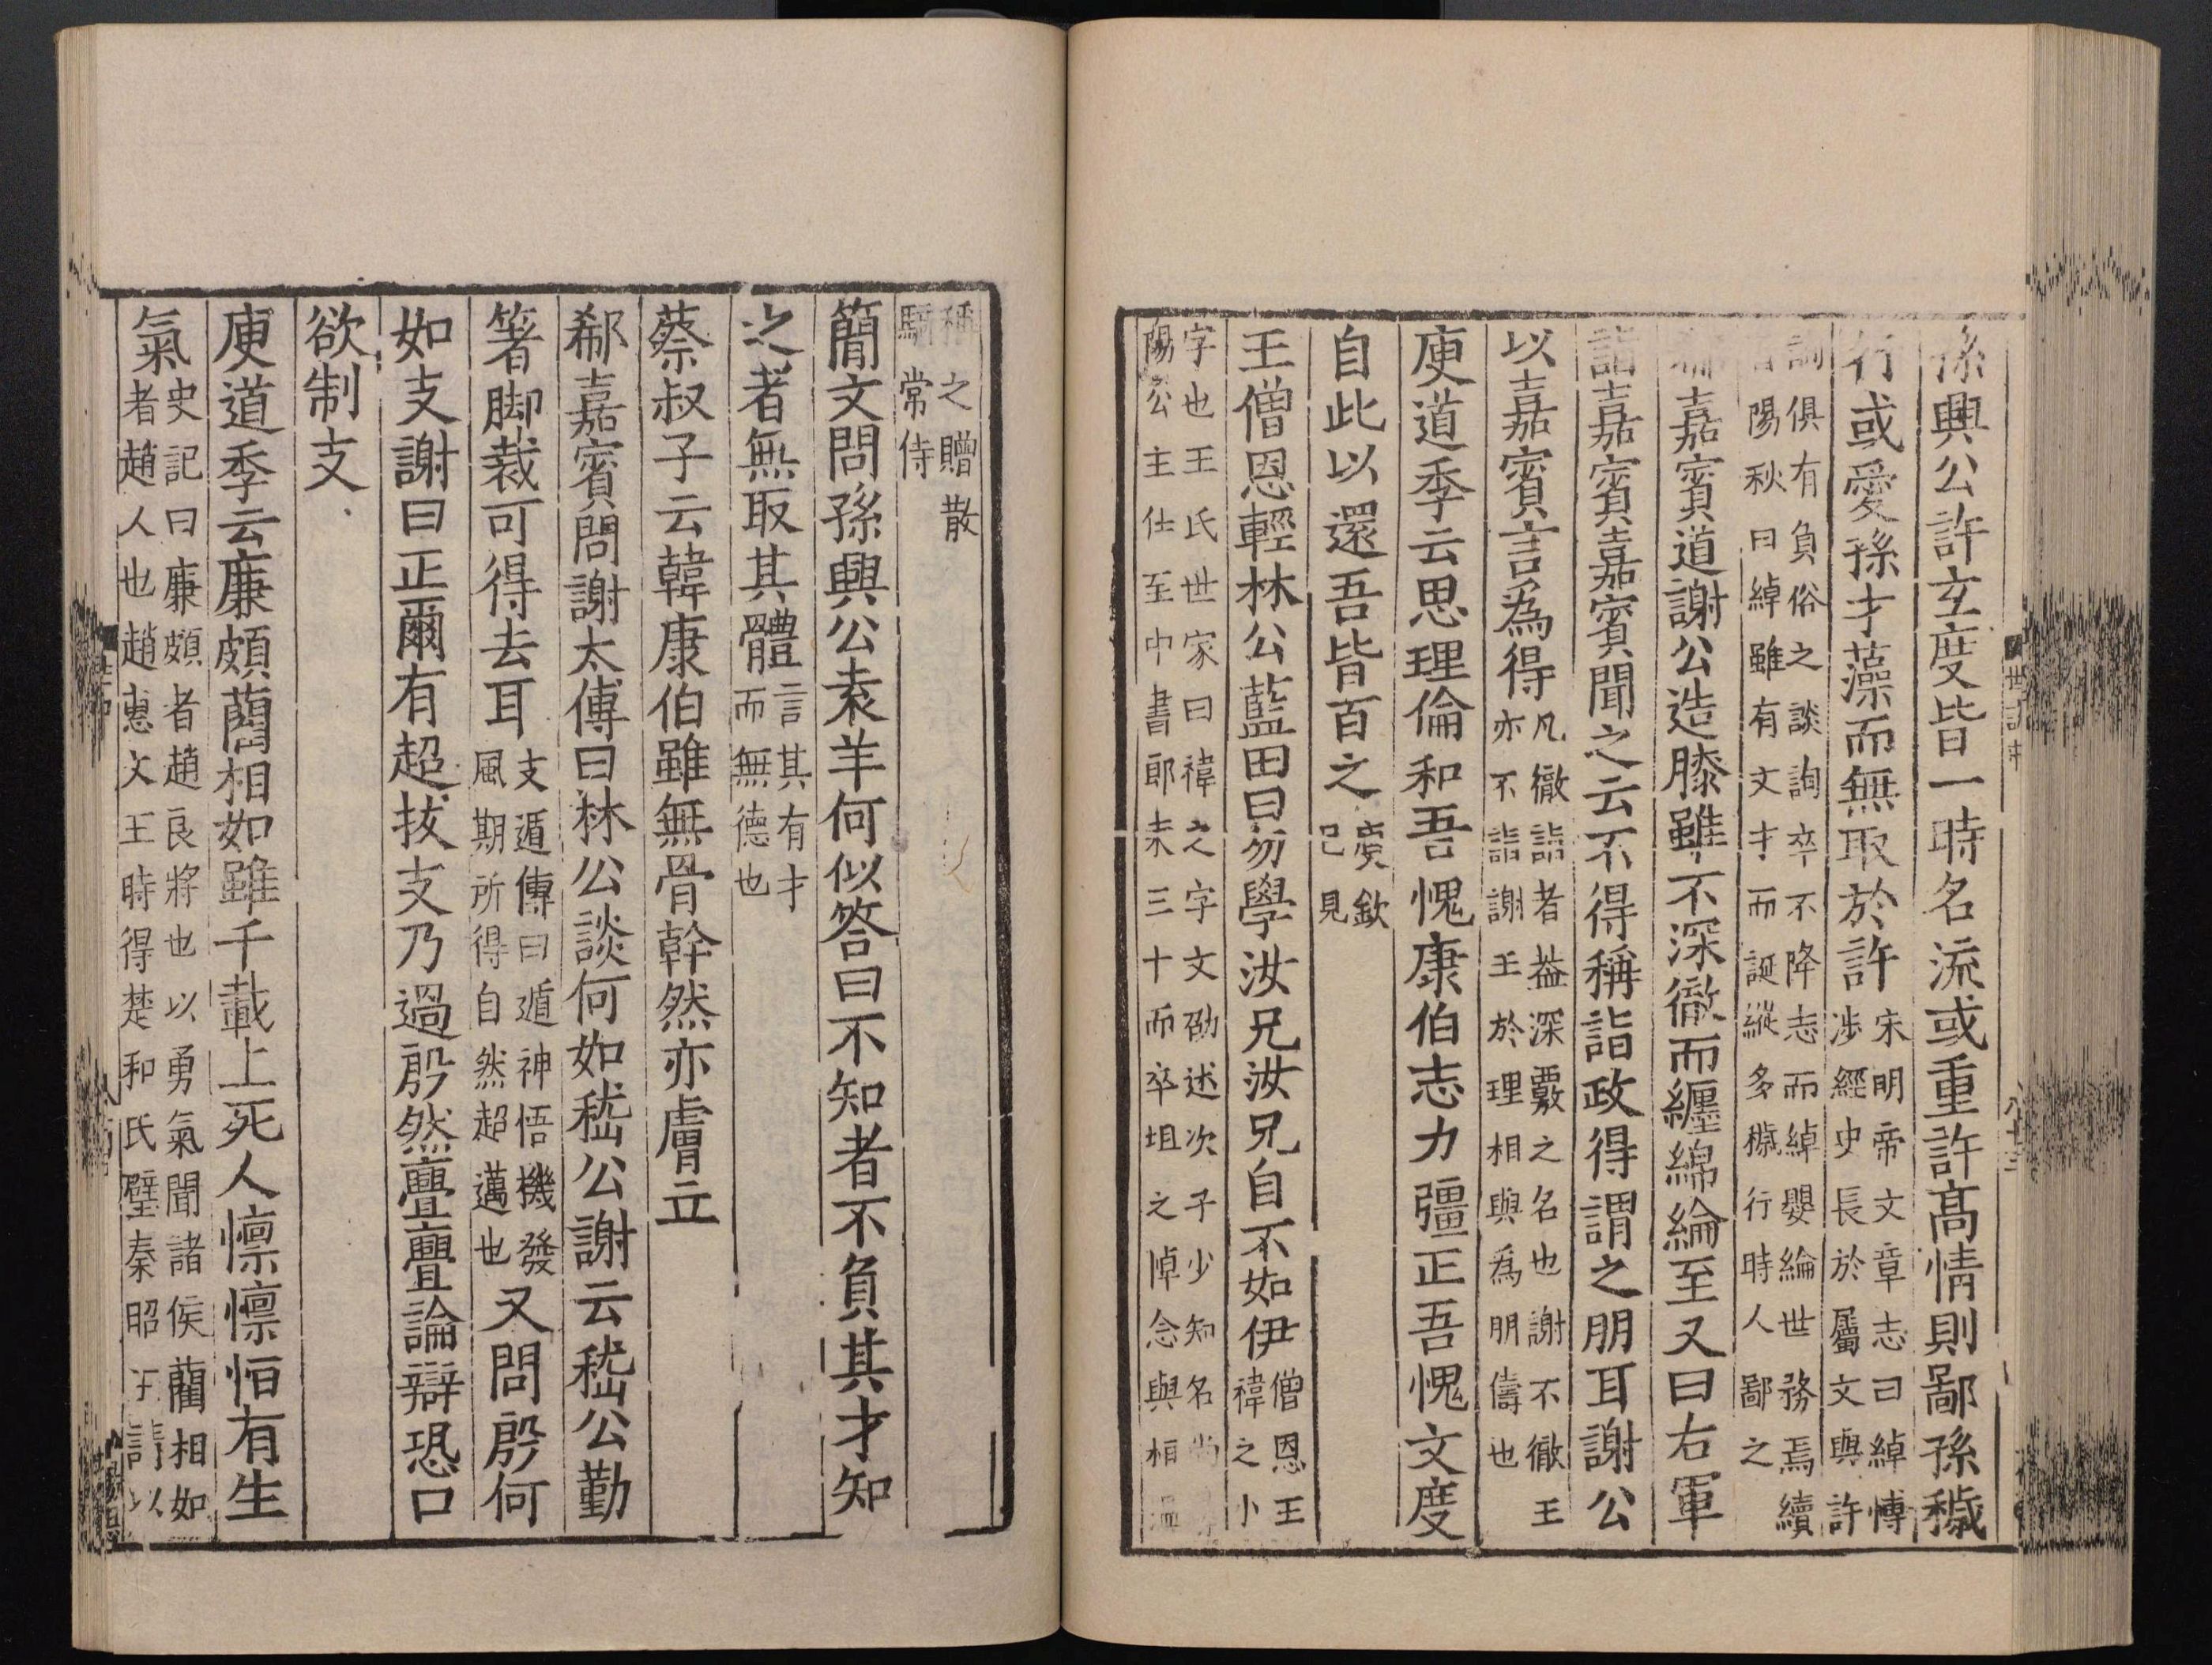 孫興公許玄度皆一時名流或重許髙情則鄙孫穢
行或愛孫才藻而無取於許宋明帝文章志曰綽愽
涉經史長於屬文與許
訓俱有負俗之談詢卒不降志而綽嬰綸世務焉續
陽秋曰綽雖有文才而誕縱多穢行時人鄙之
嘉賓道謝公造膝雖不深徹而纏綿綸至又曰右軍
詣嘉賓嘉賓聞之云不得稱詣政得謂之朋耳謝公
以嘉賓言為得凡徹詣者葢深覈之名也謝不徹王
亦不詣謝王於理相與爲朋儔也
庾道季云思理倫和吾愧康伯志力彊正吾愧文度
自此以還吾皆百之庾欽
已見
王僧恩輕林公藍田曰勿學汝兄汝兄自不如伊僧恩王
禕之小
字也王氏世家曰禕之字文劭述次子少知名尚
陽公主仕至中書郎未三十而卒坦之悼念與桓溫
稱之贈散
騎常侍
簡文問孫興公袁羊何似答曰不知者不負其才知
之者無取其體言其有才
而無德也
蔡叔子云韓康伯雖無骨幹然亦膚立
郗嘉賓問謝太傅曰林公談何如嵇公謝云嵇公勤
著脚裁可得去耳支遁傳曰遁神悟機發
風期所得自然超邁也又問殷何
如支謝曰正爾有超拔支乃過殷然亹亹論辯恐口
欲制支
庾道季云廉頗藺相如雖千載上死人懍懍恒有生
氣史記曰廉頗者趙良將也以勇氣聞諸侯藺相如
者趙人也趙惠文王時得楚和氏璧秦昭王請以
世訪
八十三